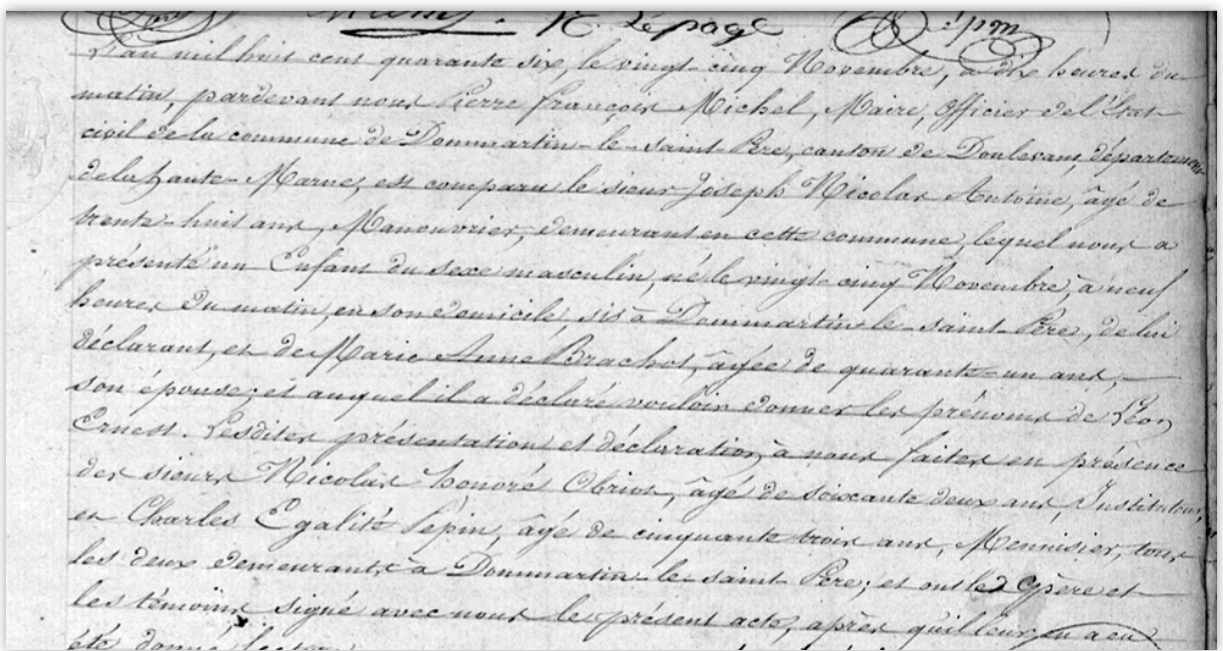 K. Lépagé
L'an mil huit cent quarante six, le vingt-cinq Novembre, à dix heures du
matin, pardevant nous Pierre François Michel, Maire, Officier de l'État
civil de la commune de Dommartin-le-saint-Père, canton de Doulevant, département
de la haute-Marne, est comparu le sieur Joseph Nicolas Antoine, âgé de
trente-huit ans, Manouvrier, demeurant en cette commune, lequel nous a
présenté un Enfant du sexe masculin, né le vingt-cinq Novembre, à neuf
heures du matin, en son domicile, sis à Dommartin le-saint-Père, de lui
déclarant, et de Marie Anne Brachot, âgée de quarante-un ans,
son épouse; et auquel il a déclaré vouloir donner les prénoms de Léon
Ernest. Lesdites présentation et déclaration à nous faites en présence
des sieurs Nicolas honoré Obriot, âgé de soixante deux ans, Instituteur,
et Charles Egalité Pepin, âgé de cinquante trois ans, Menuisier, tous
les deux demeurant à Dommartin le-saint-Père; et ont les père et
les témoins signé avec nous le présent acte, après qu'il leur en a eu
été donné lecture